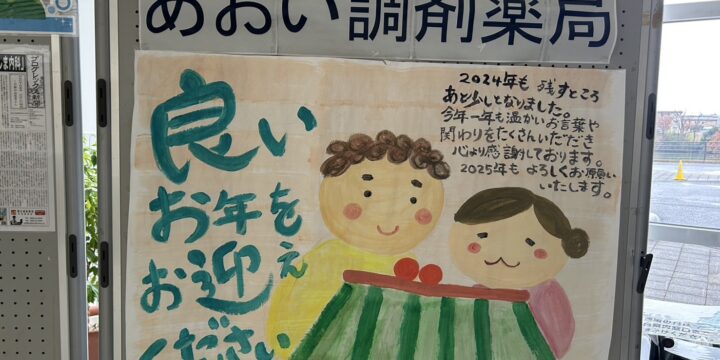 あおい調剤薬局
良い
お年を
お迎え
ください
2024年も 残すところ
あと少しとなりました。
今年一年も温かいお言葉や
関わりをたくさんいただき
心より感謝しております。
2025年も よろしくお願い
いたします。